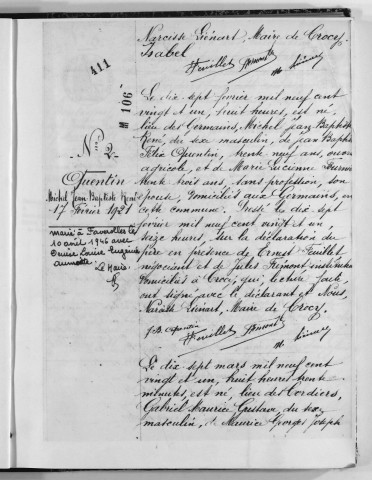 Narcisse Liénart, Maire de Crocy,
Isabel
Feuillet
411
M 106
N° 2
Quentin
Michel Jean Baptiste René
17 Février 1921
Marié à Faverolles le
10 avril 1946 avec
Louise Eugénie
Le Maire
Le dix sept février mil neuf cent
vingt et un, huit heures, est né,
lieu des Germains, Michel Jean Baptiste
René, du sexe masculin, de Jean Baptiste
Félix Quentin, trente neuf ans,
agricole, et de Marie Lucienne
trente trois ans, sans profession, son
épouse, domiciliés aux Germains, en
cette commune. Dressé le dix sept
février mil neuf cent vingt et un,
seize heures, sur la déclaration du
père en présence de Ernest Feuillet
négociant et de Jules Hémont instituteur
domiciliés à Crocy, qui, lecture faite,
ont signé avec le déclarant et Nous,
Liénart, Maire de Crocy.
Feuillet
Le dix sept mars mil neuf cent
vingt et un, huit heures trente
minutes, est né, lieu des Cordiers,
Gabriel Maurice Gustave, du sexe
masculin, de Maurice Georges Joseph